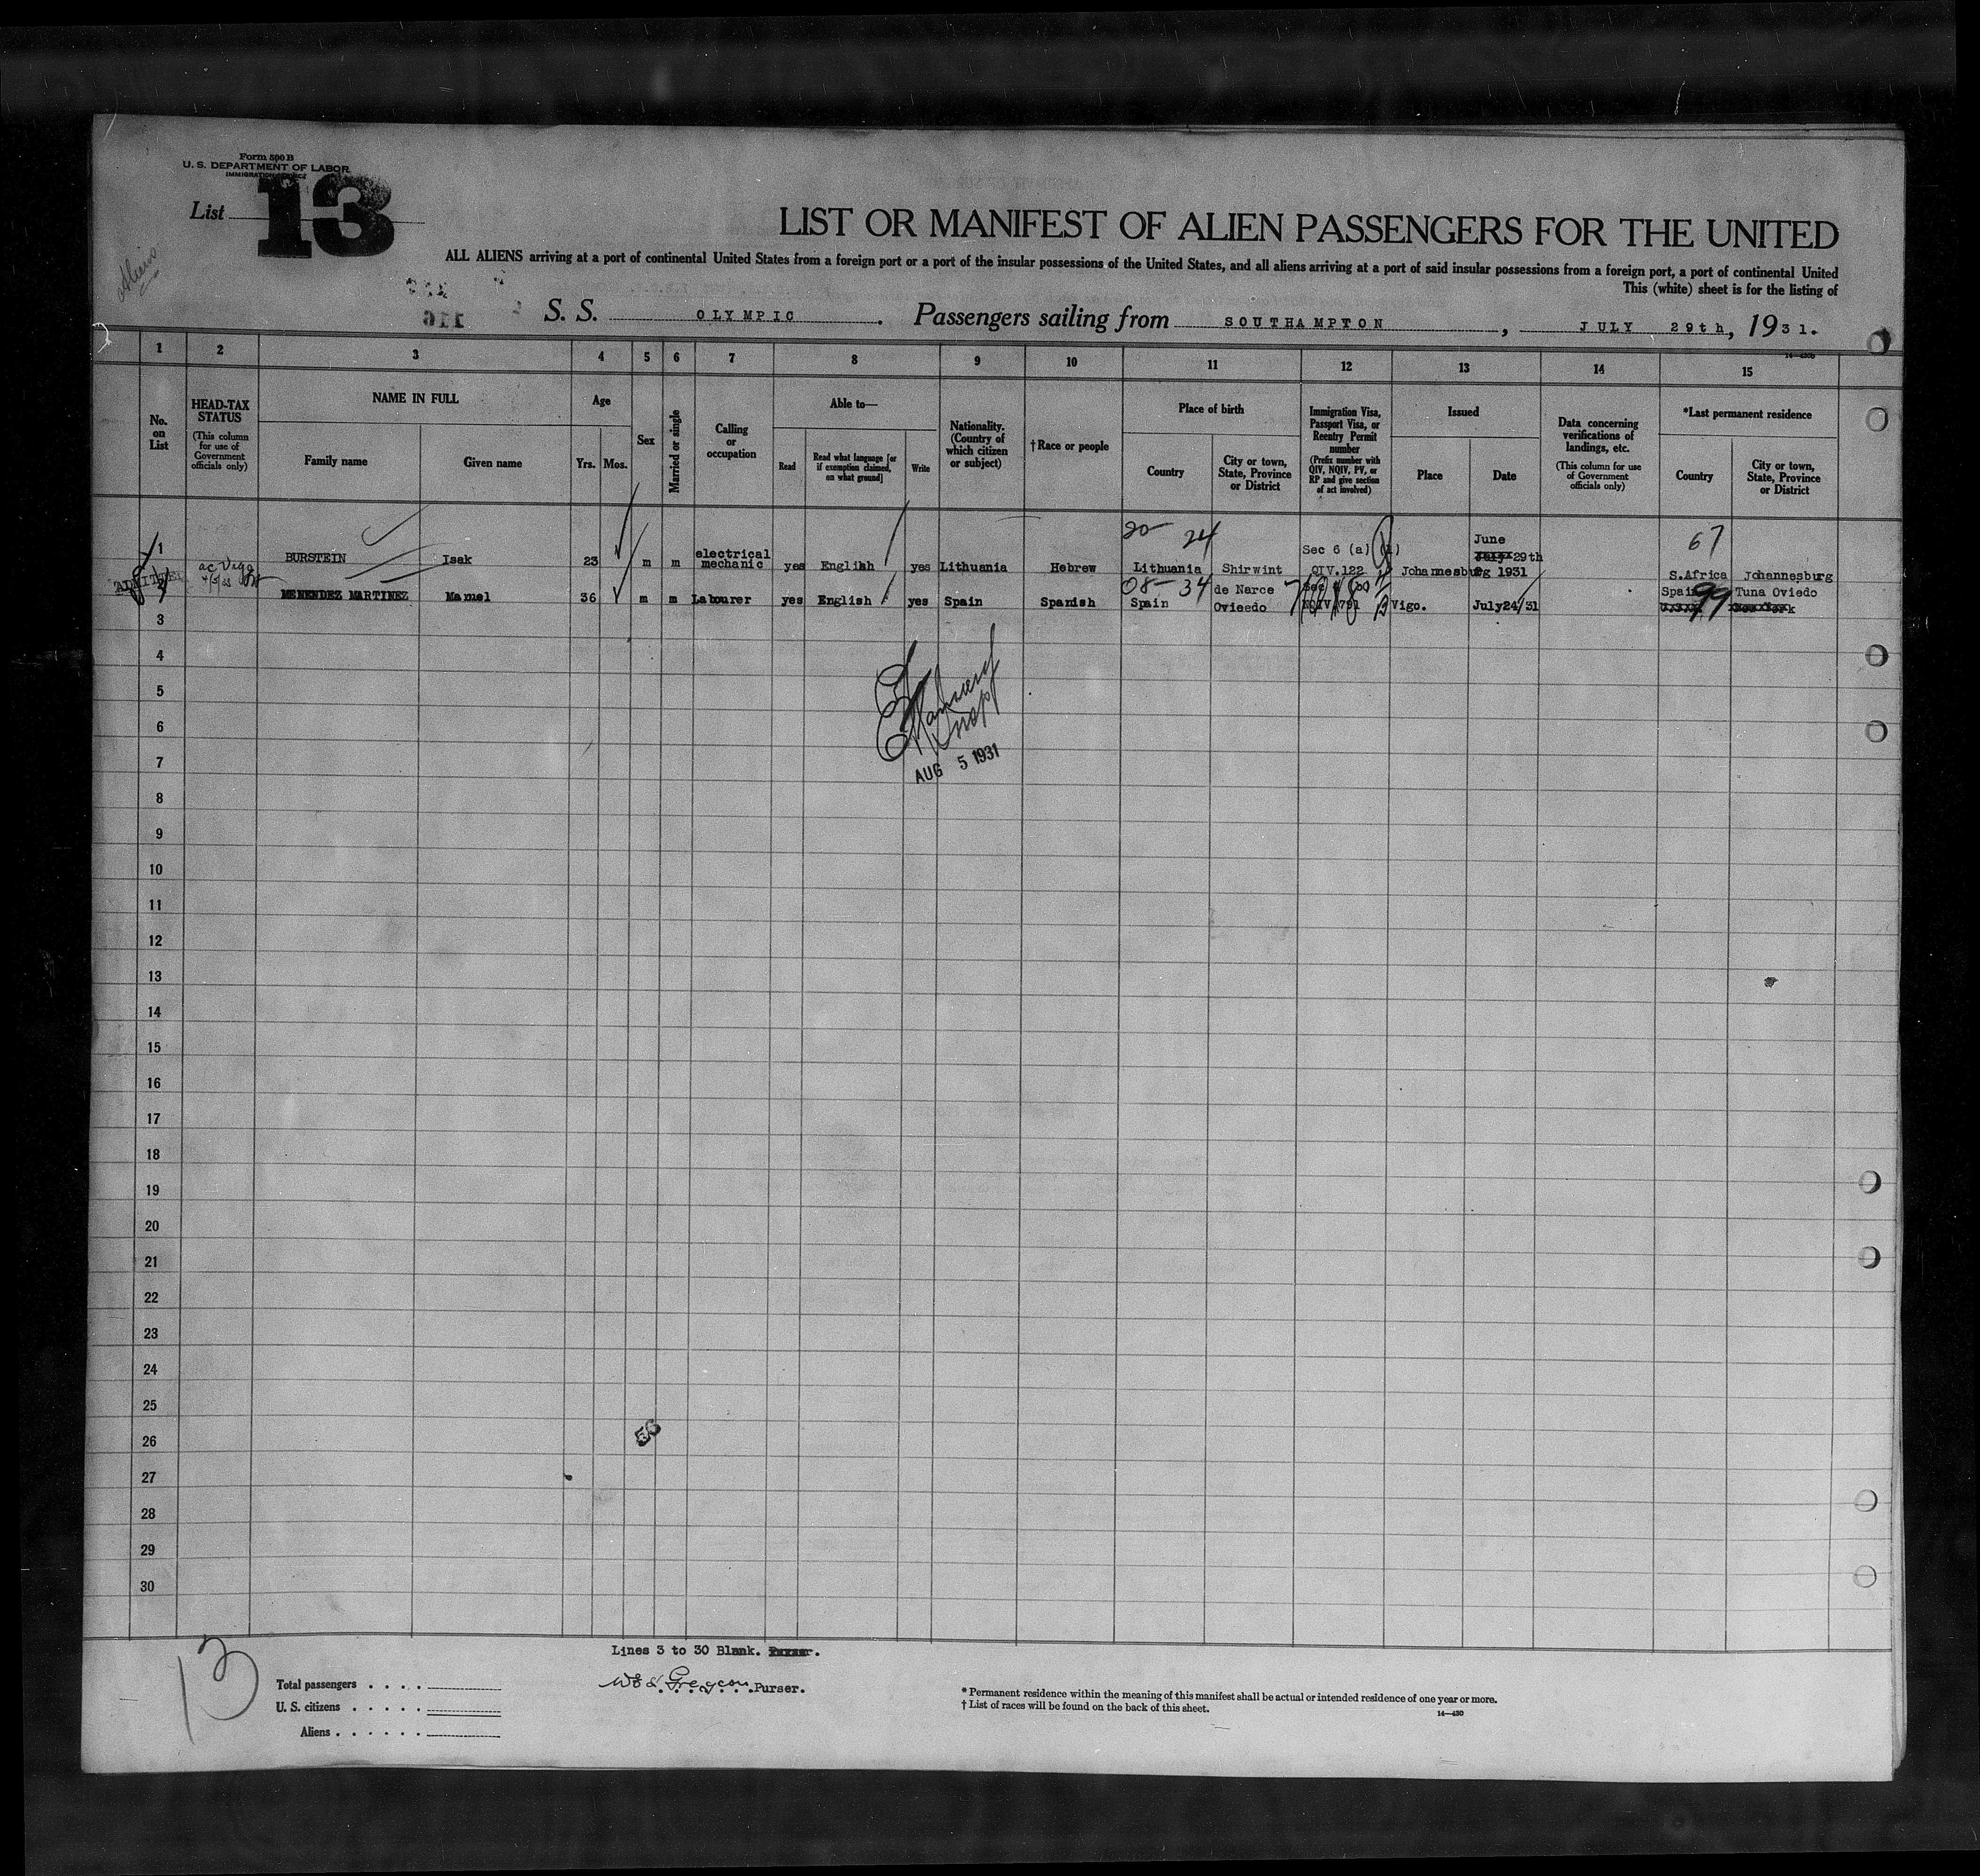 Form 500 B
U. S. DEPARTMENT OF LABOR
IMMIGRATION SERVICE
List 13
LIST OR MANIFEST OF ALIEN PASSENGERS FOR THE UNITED
ALL ALIENS arriving at a port of continental United States from a foreign port or a port of the insular possessions of the United States, and all aliens arriving at a port of said insular possessions from a foreign port, a port of continental United
This (white) sheet is for the listing of
S. S. OLYMPIC. Passengers sailing from SOUTHAMPTON, JULY 29th, 1931.
1 2 3 4 5 6 7 8 9 10 11 12 13 14 15
No. on List
HEAD-TAX STATUS
(This column for use of Government officials only)
NAME IN FULL
Family name
Given name
Age
Yrs. Mos.
Sex
Married or single
Calling or occupation
Able to—
Read
Read what language [or if exemption claimed, on what ground]
Write
Nationality. (Country of which citizen or subject)
†Race or people
Place of birth
Country
City or town, State, Province or District
Immigration Visa, Passport Visa, or Reentry Permit number
(Prefix number with QIV, NQIV, PV, or RP and give section of act involved)
Issued
Place
Date
Data concerning verifications of landings, etc.
(This column for use of Government officials only)
*Last permanent residence
Country
City or town, State, Province or District
20— 24
67
1 BURSTEIN Isak 23 m m electrical mechanic yes English yes Lithuania Hebrew Lithuania Shirwint Sec 6 (a) QIV.122 Johannesburg June 29th 1931 S.Africa Johannesburg
ADMITTED
08— 34
99
2 MENENDEZ MARTINEZ Manuel 36 m m Labourer yes English yes Spain Spanish Spain de Narce Oviedo Vigo. July24/31 Spain Tuna Oviedo
3
4
5
6
7
AUG 5 1931
8
9
10
11
12
13
14
15
16
17
18
19
20
21
22
23
24
25
26
56
27
28
29
30
Lines 3 to 30 Blank.
13
Purser.
Total passengers
U. S. citizens
Aliens
* Permanent residence within the meaning of this manifest shall be actual or intended residence of one year or more.
† List of races will be found on the back of this sheet.
14—430